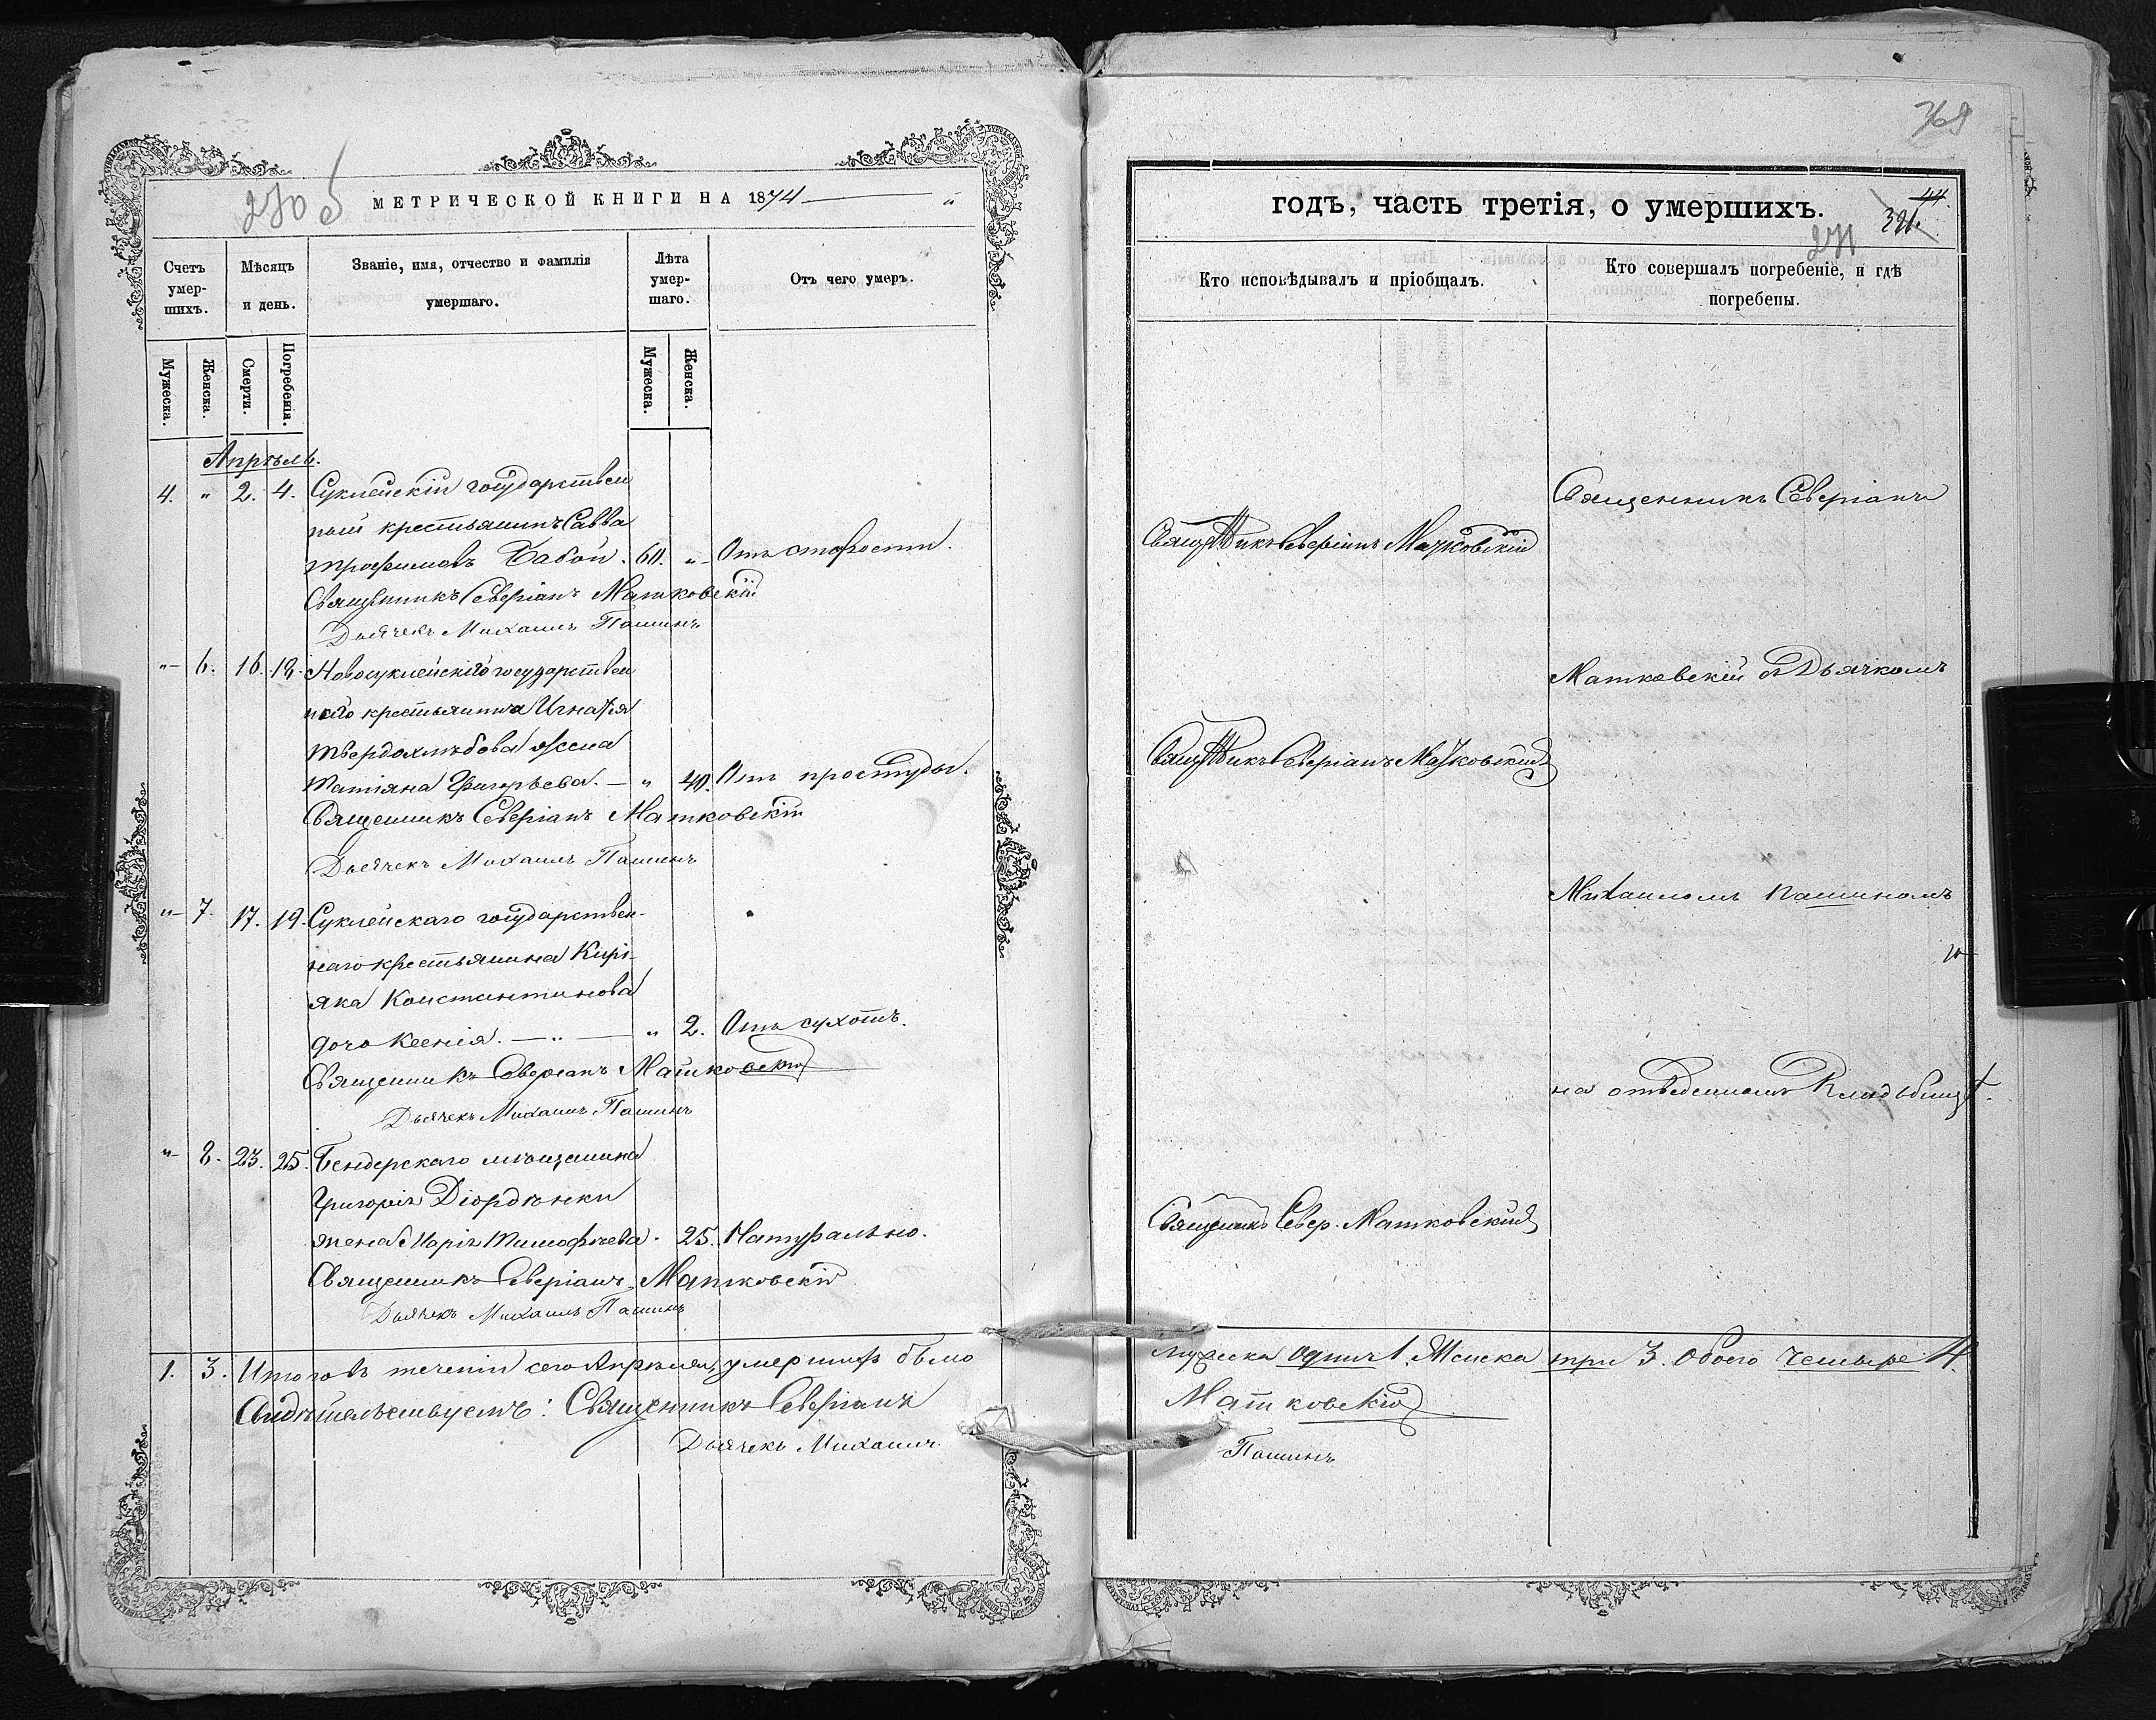 270 б
МЕТРИЧЕСКОЙ КНИГИ НА 1874
Счетъ умер-шихъ.
Мѣсяцъ и день.
Званіе, имя, отчество и фамилія умершаго.
Лѣта умер-шаго.
Отъ чего умеръ.
Мужеска.
Женска.
Смерти.
Погребенія.
Мужеска.
Женска.
Апрѣль.
4. " 2. 4. Суклейскій государствен
ный крестьянинъ Савва
Трофимовъ Бабой. 60. " Отъ старости.
Священникъ Северіанъ Матковскій
Дьячекъ Михаилъ Пашинъ
" 6. 16. 18. Новосуклейскаго государствен
наго крестьянина Игнатія
Твердохлѣбова жена
Татіяна Григорьева. — " 40. Отъ простуды.
Священникъ Северіанъ Матковскій
Дьячекъ Михаилъ Пашинъ
" 7. 17. 19. Суклейскаго государствен-
наго крестьянина Кирі-
яка Константинова
дочь Ксенія. — " — " 2. Отъ сухотъ.
Священникъ Северіанъ Матковскій
Дьячекъ Михаилъ Пашинъ
" 8. 23. 25. Бендерскаго мѣщанина
Григорія Діордѣнки
жена Марія Тимофѣева. 25. Натурально.
Священникъ Северіанъ Матковскій
Дьячекъ Михаилъ Пашинъ
1. 3. Итого въ теченіи сего Апрѣля умершихъ было
Свидѣтельствуемъ: Священникъ Северіанъ
Дьячекъ Михаилъ
769
годъ, часть третія, о умершихъ.
44.
271
Кто исповѣдывалъ и пріобщалъ.
Кто совершалъ погребеніе, и гдѣ погребены.
Священникъ Северіанъ
Священникъ Северіанъ Матковскій
Матковскій съ Дьячкомъ
Священникъ Северіанъ Матковскій
Михаиломъ Пашиномъ
на отведенномъ Кладбищѣ.
Священникъ Север. Матковскій
Мужеска одинъ 1. Женска три 3. Обоего четыре 4.
Матковскій
Пашинъ